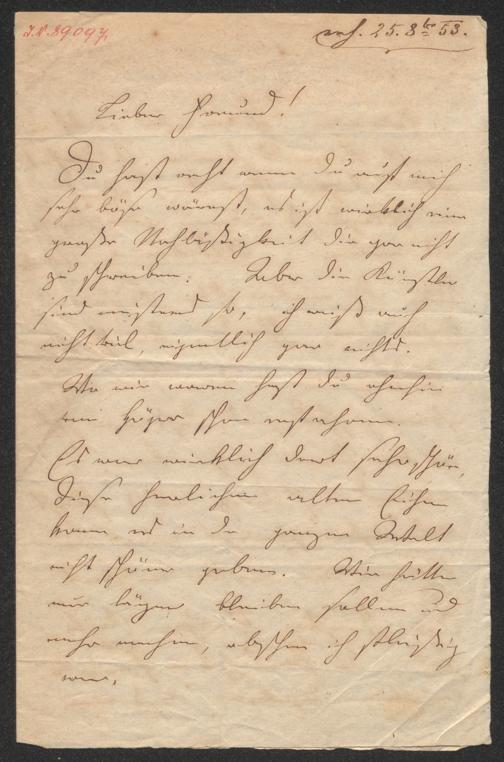 I.N. 39097
erh. 25. 8br 53.
Lieber Freund!
Du hast recht wenn du auf mich
sehr böse wärest, es ist wirklich eine
große Nachläßigkeit dir gar nicht
zu schreiben. Aber die Künstler
sind meistens so, ich weiß auch
nicht viel, eigentlich gar nichts.
Wo wir waren hast du ohnehin
von schon erfahren.
Es war wirklich dort sehr schön,
diese herrlichen alten Eichen
kann es in der ganzen Welt
nicht schöner geben. Wir hätten
nur länger bleiben sollen und
mehr machen, obschon ich fleißig
war.